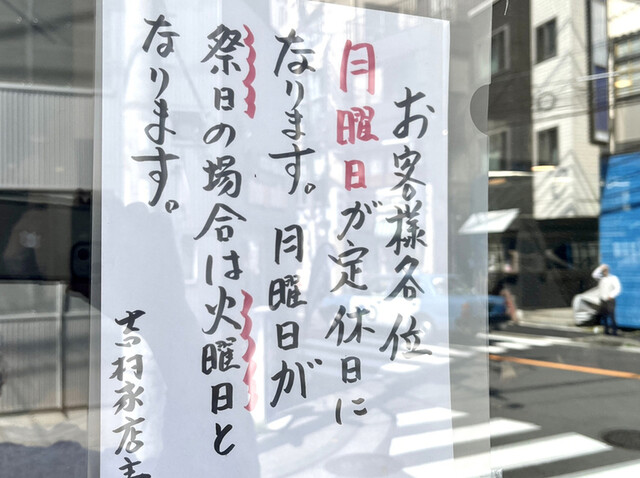 お客様各位
月曜日が定休日に
なります。月曜日が
祭日の場合は火曜日と
なります。
吉村家店主